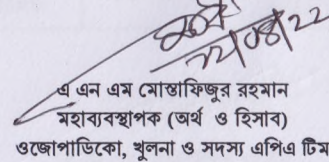 ২২/০৪/২২
এ এন এম মোস্তাফিজুর রহমান
মহাব্যবস্থাপক (অর্থ ও হিসাব)
ওজোপাডিকো, খুলনা ও সদস্য এপিএ টিম